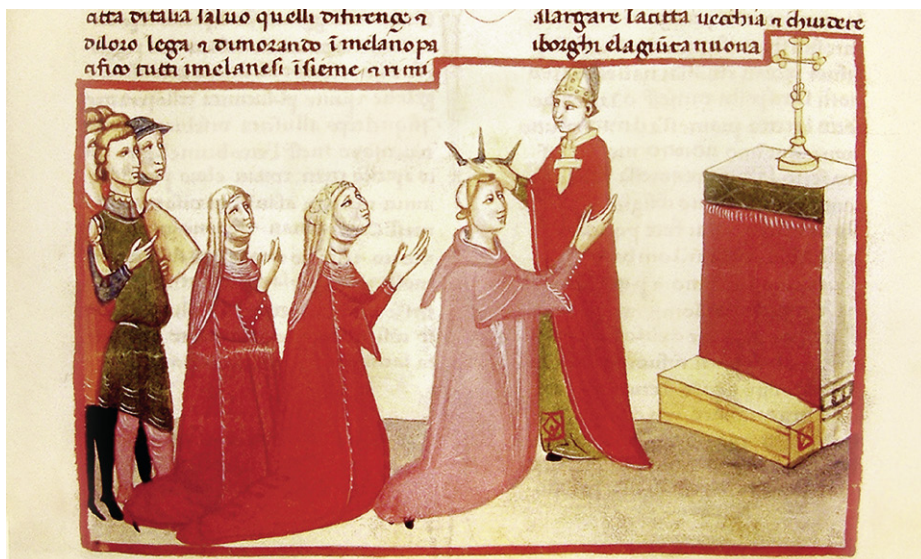 citta ditalia saluo quelli difirençe ⁊
diloro lega ⁊ dimorando ĩ melano pa
cifico tutti imelanesi ĩsieme ⁊ rimi
alargare lacitta uecchia ⁊ chiudere
iborghi ela giũta nuoua